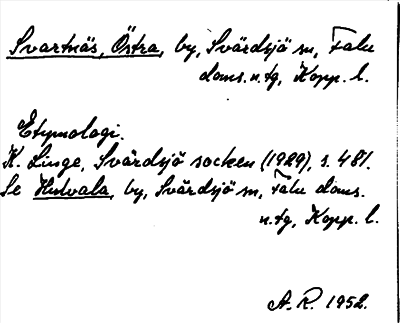 Svartnäs, Östra, by, Svärdsjö sn, Falu
doms.n.tg, Kopp. l.
Etymologi.
K. Linge, Svärdsjö socken (1929), s. 481.
Se Hulvala, by, Svärdsjö sn, Falu doms.
n.tg, Kopp. l.
A. R. 1952.